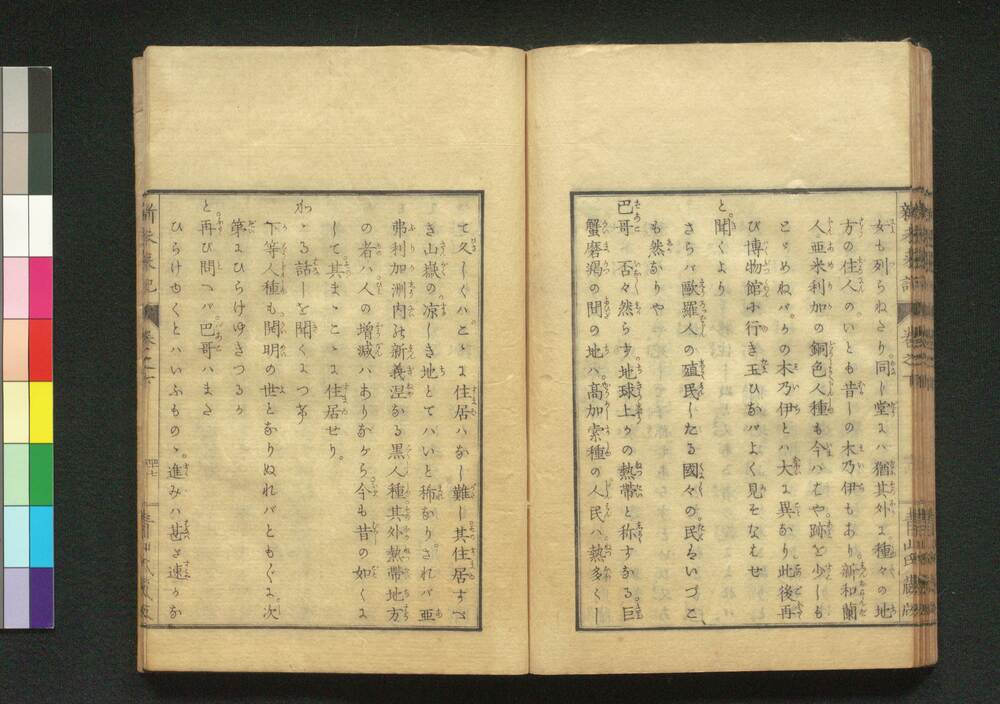 女も列らねたり同し堂にハ猶其外に種々の地
方の住人のいとも昔しの木乃伊もあり新和蘭
人亜米利加の銅色人種も今ハはや跡を少しも
とゞめねバかの木乃伊とハ大に異なり此後再
び博物館に行き玉ひなバよく見そなむせ
と聞くより
さらバ歐羅人の殖民したる國々の民もいづこ
も然なりや
巴哥 否々然らず地球上かの熱帯と称するなる巨
蟹磨羯の間の地ハ高加索種の人民ハ熱多くし
て久しくハこゝに住居ハなし難し其住居すべ
き山嶽の凉しき地とてハいと稀なりされバ亜
弗利加洲内の新義涅なる黒人種其外熱帯地方
の者ハ人の増減ハありながら今も昔の如くに
して其まゝこゝに住居せり。
かゝる話しを聞くにつけ
下等人種も開明の世となりぬれバともぐに次
第にひらけゆきつるか
と再び問へバ巴哥ハまた
ひらけゆくとハいふものゝ進みハ甚と速かな
新未来記